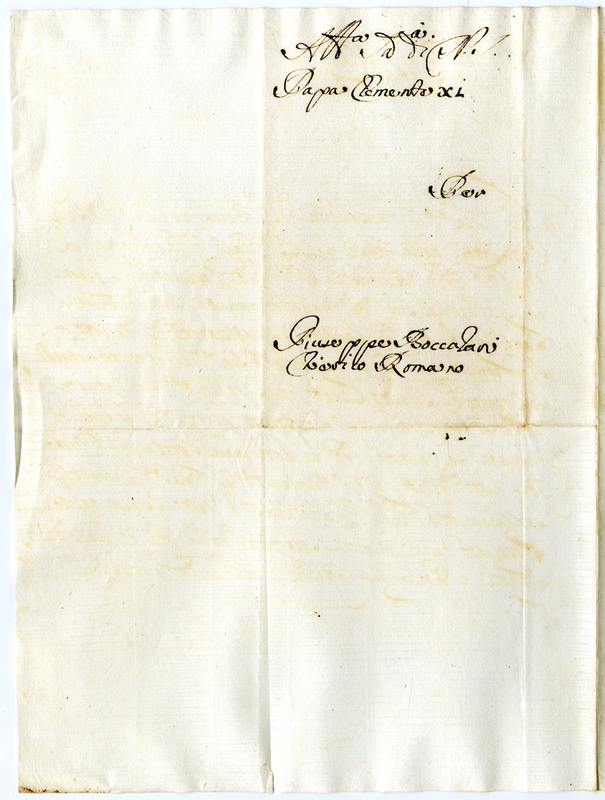 Alla Sa di N. S.
Papa Clemente XI
Per
Giuseppe Boccalari
Chierico Romano